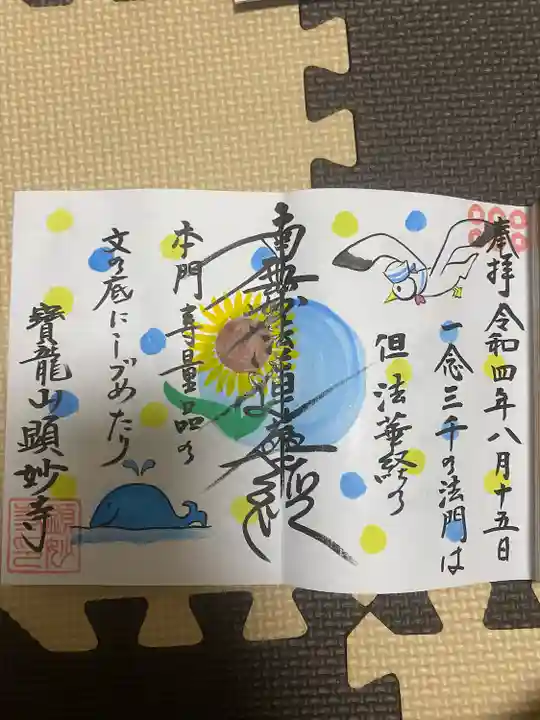 奉拝 令和四年八月十五日
一念三千の法門は
但法華経の
南無妙法蓮華経
本門寿量品の
文の底にしづめたり
寶龍山顕妙寺